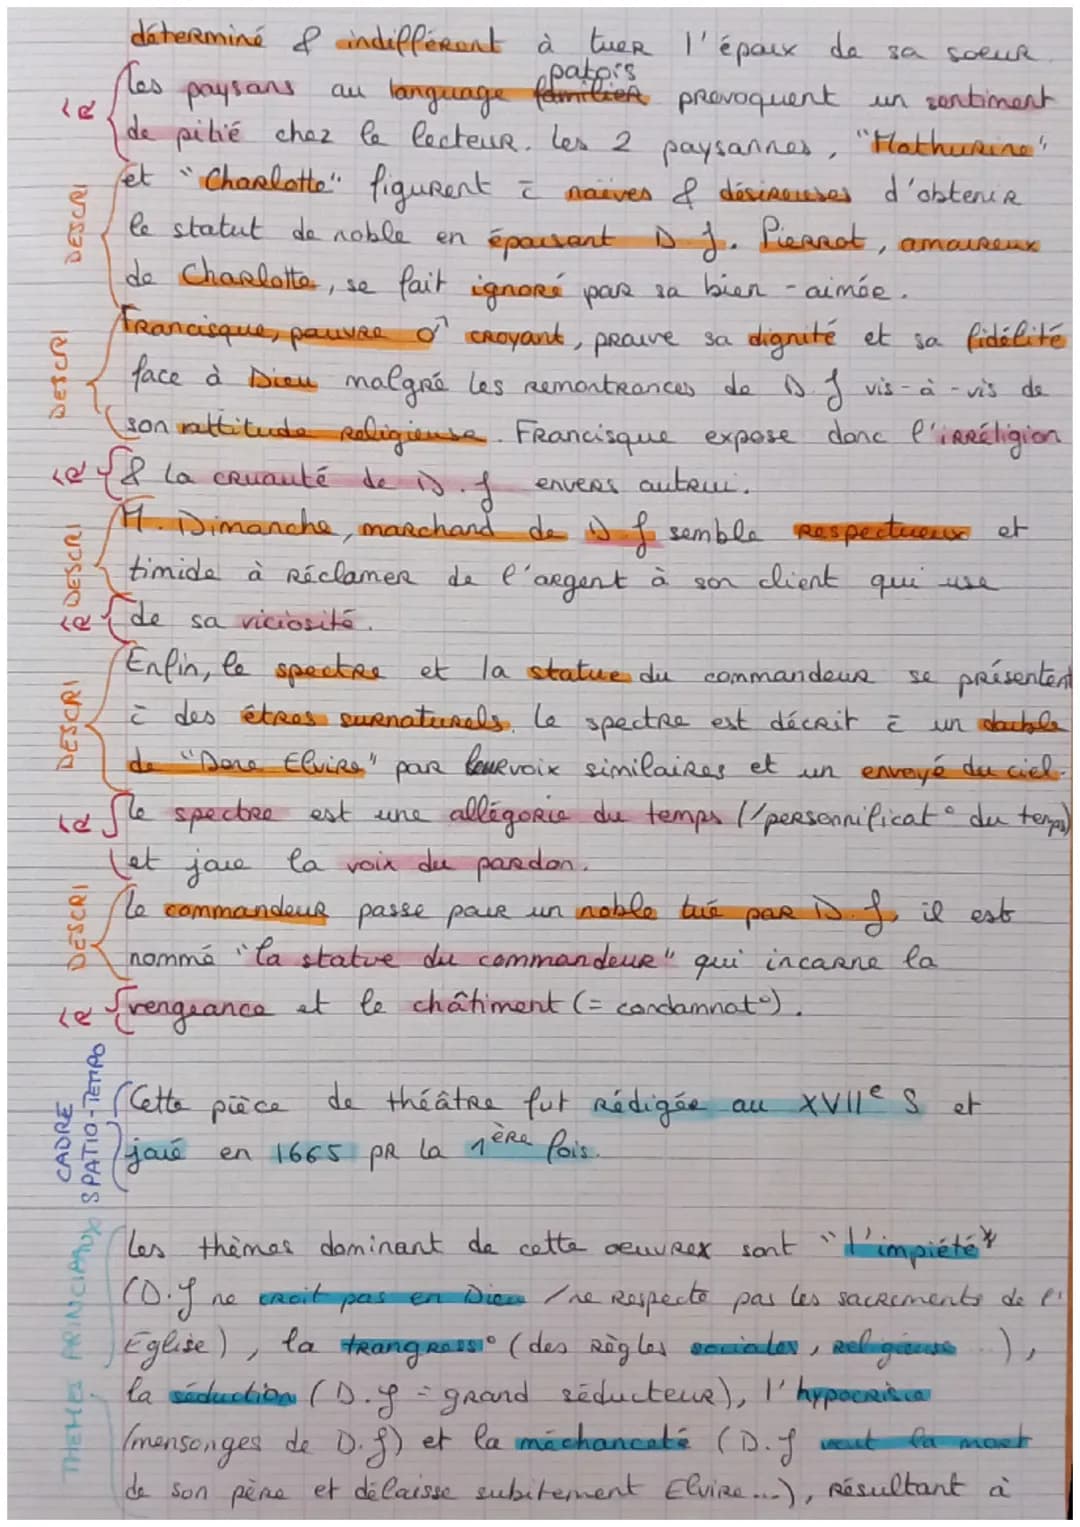 déterminé & indifférent à tuer l'époux de sa soeur.
patois
les paysans au language familier provoquent un sentiment
de pitié chez le lecteur. Les 2 paysannes, "Mathurine"
et "Charlotte" figurent c̄ naïves & désireuses d'obtenir
le statut de noble en épousant D.J. Pierrot, amoureux
de Charlotte, se fait ignoré par sa bien-aimée.
Francisque, pauvre ♂ croyant, prouve sa dignité et sa fidélité
face à Dieu malgré les remontrances de D.J vis-à-vis de
son attitude religieuse. Francisque expose donc l'irréligion
& la cruauté de D.J envers autrui.
M. Dimanche, marchand de D.J semble respectueux et
timide à réclamer de l'argent à son client qui use
de sa viciosité.
Enfin, le spectre et la statue du commandeur se présentent
c̄ des êtres surnaturels. Le spectre est décrit c̄ un double
de "Done Elvire" par leur voix similaires et un envoyé du ciel.
le spectre est une allégorie du temps (/personnificat° du temps)
et joue la voix du pardon.
Le commandeur passe pour un noble tué par D.J, il est
nommé "la statue du commandeur" qui incarne la
vengeance et le châtiment (= condamnat°).
DESCRI
DESCRI
DESCRI
DESCRI
DESCRI
CADRE
SPATIO-TEMPO
Cette pièce de théâtre fut rédigée au XVIIe S et
joué en 1665 pr la 1ère fois.
THEMES PRINCIPAUX
Les thèmes dominant de cette oeuvrex sont "l'impiété*
(D.J ne croit pas en Dieu /ne respecte pas les sacrements de l'
Eglise), la trangress° (des règles sociales, religieuse ...),
la séduction (D.J = grand séducteur), l'hypocrisie
(mensonges de D.J) et la méchanceté (D.J veut la mort
de son père et délaisse subitement Elvire...), résultant à